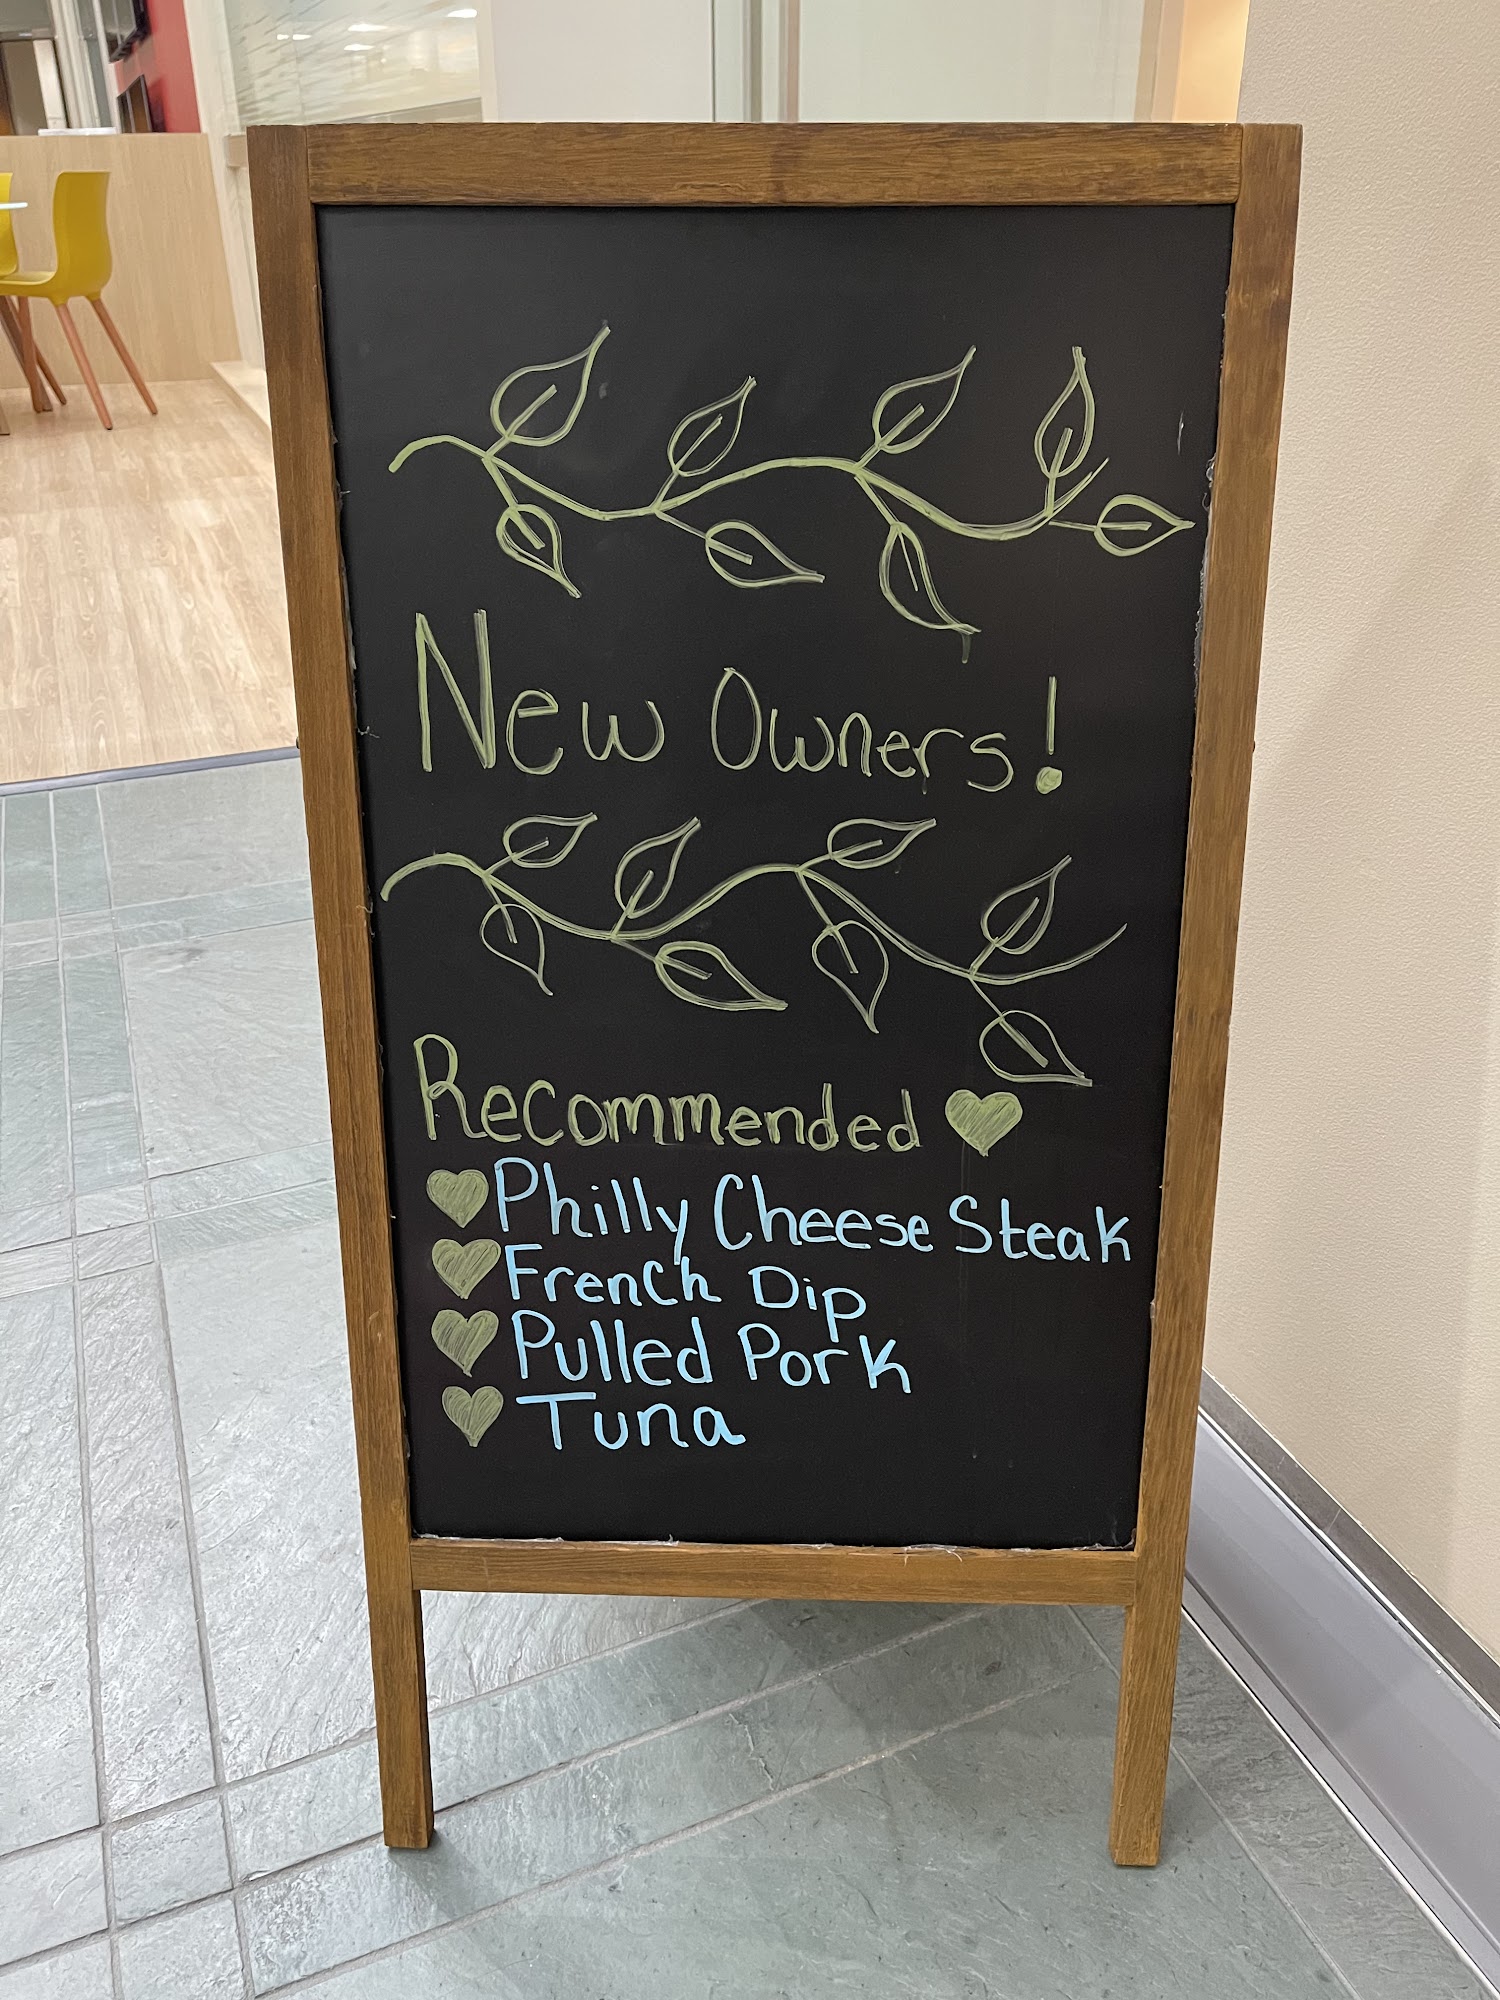 New Owners!
Recommended
Philly Cheese Steak
French Dip
Pulled Pork
Tuna